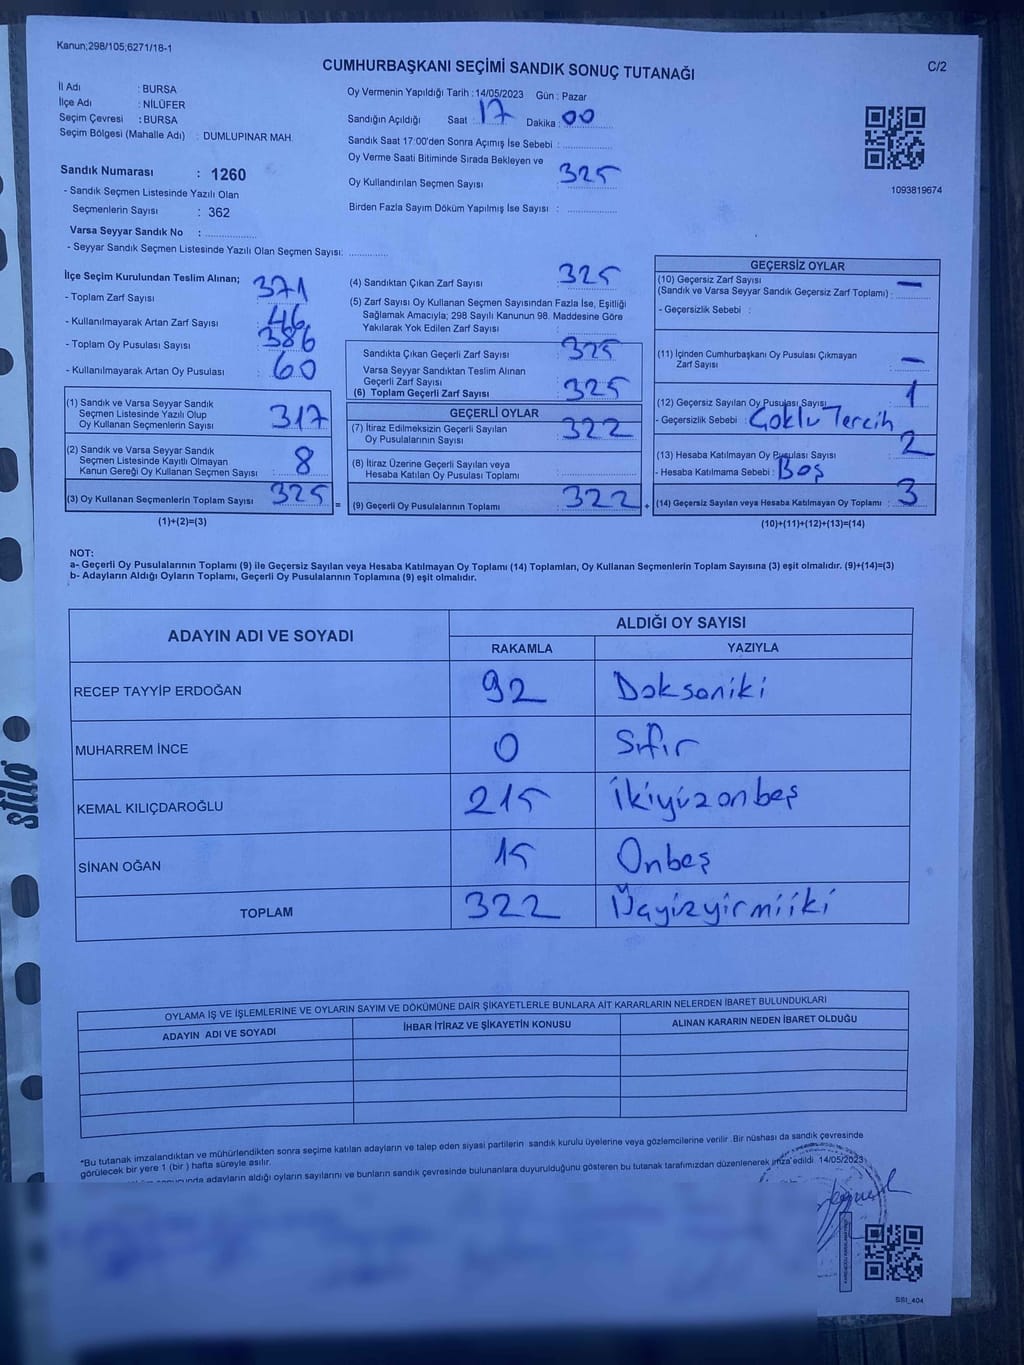 Kanun;298/105;6271/18-1
CUMHURBAŞKANI SEÇİMİ SANDIK SONUÇ TUTANAĞI
C/2
İl Adı : BURSA
İlçe Adı : NİLÜFER
Seçim Çevresi : BURSA
Seçim Bölgesi (Mahalle Adı) : DUMLUPINAR MAH.
Sandık Numarası : 1260
- Sandık Seçmen Listesinde Yazılı Olan
Seçmenlerin Sayısı : 362
Varsa Seyyar Sandık No : ................
- Seyyar Sandık Seçmen Listesinde Yazılı Olan Seçmen Sayısı: ............
Oy Vermenin Yapıldığı Tarih : 14/05/2023 Gün : Pazar
Sandığın Açıldığı Saat : 17 Dakika : 00
Sandık Saat 17:00'den Sonra Açımış İse Sebebi : ................
Oy Verme Saati Bitiminde Sırada Bekleyen ve
Oy Kullandırılan Seçmen Sayısı : 325
Birden Fazla Sayım Döküm Yapılmış İse Sayısı : ................
1093819674
İlçe Seçim Kurulundan Teslim Alınan;
- Toplam Zarf Sayısı : 371
- Kullanılmayarak Artan Zarf Sayısı : 46
- Toplam Oy Pusulası Sayısı : 386
- Kullanılmayarak Artan Oy Pusulası : 60
(1) Sandık ve Varsa Seyyar Sandık
Seçmen Listesinde Yazılı Olup
Oy Kullanan Seçmenlerin Sayısı : 317
(2) Sandık ve Varsa Seyyar Sandık
Seçmen Listesinde Kayıtlı Olmayan
Kanun Gereği Oy Kullanan Seçmen Sayısı : 8
(3) Oy Kullanan Seçmenlerin Toplam Sayısı : 325 =
(1)+(2)=(3)
(4) Sandıktan Çıkan Zarf Sayısı : 325
(5) Zarf Sayısı Oy Kullanan Seçmen Sayısından Fazla İse, Eşitliği
Sağlamak Amacıyla; 298 Sayılı Kanunun 98. Maddesine Göre
Yakılarak Yok Edilen Zarf Sayısı : ................
Sandıkta Çıkan Geçerli Zarf Sayısı : 325
Varsa Seyyar Sandıktan Teslim Alınan
Geçerli Zarf Sayısı
(6) Toplam Geçerli Zarf Sayısı : 325
GEÇERLİ OYLAR
(7) İtiraz Edilmeksizin Geçerli Sayılan
Oy Pusulalarının Sayısı : 322
(8) İtiraz Üzerine Geçerli Sayılan veya
Hesaba Katılan Oy Pusulası Toplamı : ................
(9) Geçerli Oy Pusulalarının Toplamı : 322 +
GEÇERSİZ OYLAR
(10) Geçersiz Zarf Sayısı
(Sandık ve Varsa Seyyar Sandık Geçersiz Zarf Toplamı) : —
- Geçersizlik Sebebi :
(11) İçinden Cumhurbaşkanı Oy Pusulası Çıkmayan
Zarf Sayısı : —
(12) Geçersiz Sayılan Oy Pusulası Sayısı : 1
- Geçersizlik Sebebi : Çoklu Tercih
(13) Hesaba Katılmayan Oy Pusulası Sayısı : 2
- Hesaba Katılmama Sebebi : Boş
(14) Geçersiz Sayılan veya Hesaba Katılmayan Oy Toplamı : 3
(10)+(11)+(12)+(13)=(14)
NOT:
a- Geçerli Oy Pusulalarının Toplamı (9) ile Geçersiz Sayılan veya Hesaba Katılmayan Oy Toplamı (14) Toplamları, Oy Kullanan Seçmenlerin Toplam Sayısına (3) eşit olmalıdır. (9)+(14)=(3)
b- Adayların Aldığı Oyların Toplamı, Geçerli Oy Pusulalarının Toplamına (9) eşit olmalıdır.
ADAYIN ADI VE SOYADI ALDIĞI OY SAYISI
RAKAMLA YAZIYLA
RECEP TAYYİP ERDOĞAN 92 Doksaniki
MUHARREM İNCE 0 Sıfır
KEMAL KILIÇDAROĞLU 215 İkiyüzonbeş
SİNAN OĞAN 15 Onbeş
TOPLAM 322
OYLAMA İŞ VE İŞLEMLERİNE VE OYLARIN SAYIM VE DÖKÜMÜNE DAİR ŞİKAYETLERLE BUNLARA AİT KARARLARIN NELERDEN İBARET BULUNDUKLARI
ADAYIN ADI VE SOYADI İHBAR İTİRAZ VE ŞİKAYETİN KONUSU ALINAN KARARIN NEDEN İBARET OLDUĞU
*Bu tutanak imzalandıktan ve mühürlendikten sonra seçime katılan adayların ve talep eden siyasi partilerin sandık kurulu üyelerine veya gözlemcilerine verilir. Bir nüshası da sandık çevresinde
görülecek bir yere 1 (bir ) hafta süreyle asılır.
adayların aldığı oyların sayılarını ve bunların sandık çevresinde bulunanlara duyurulduğunu gösteren bu tutanak tarafımızdan düzenlenerek imza edildi. 14/05/2023
SSI_404
stilo